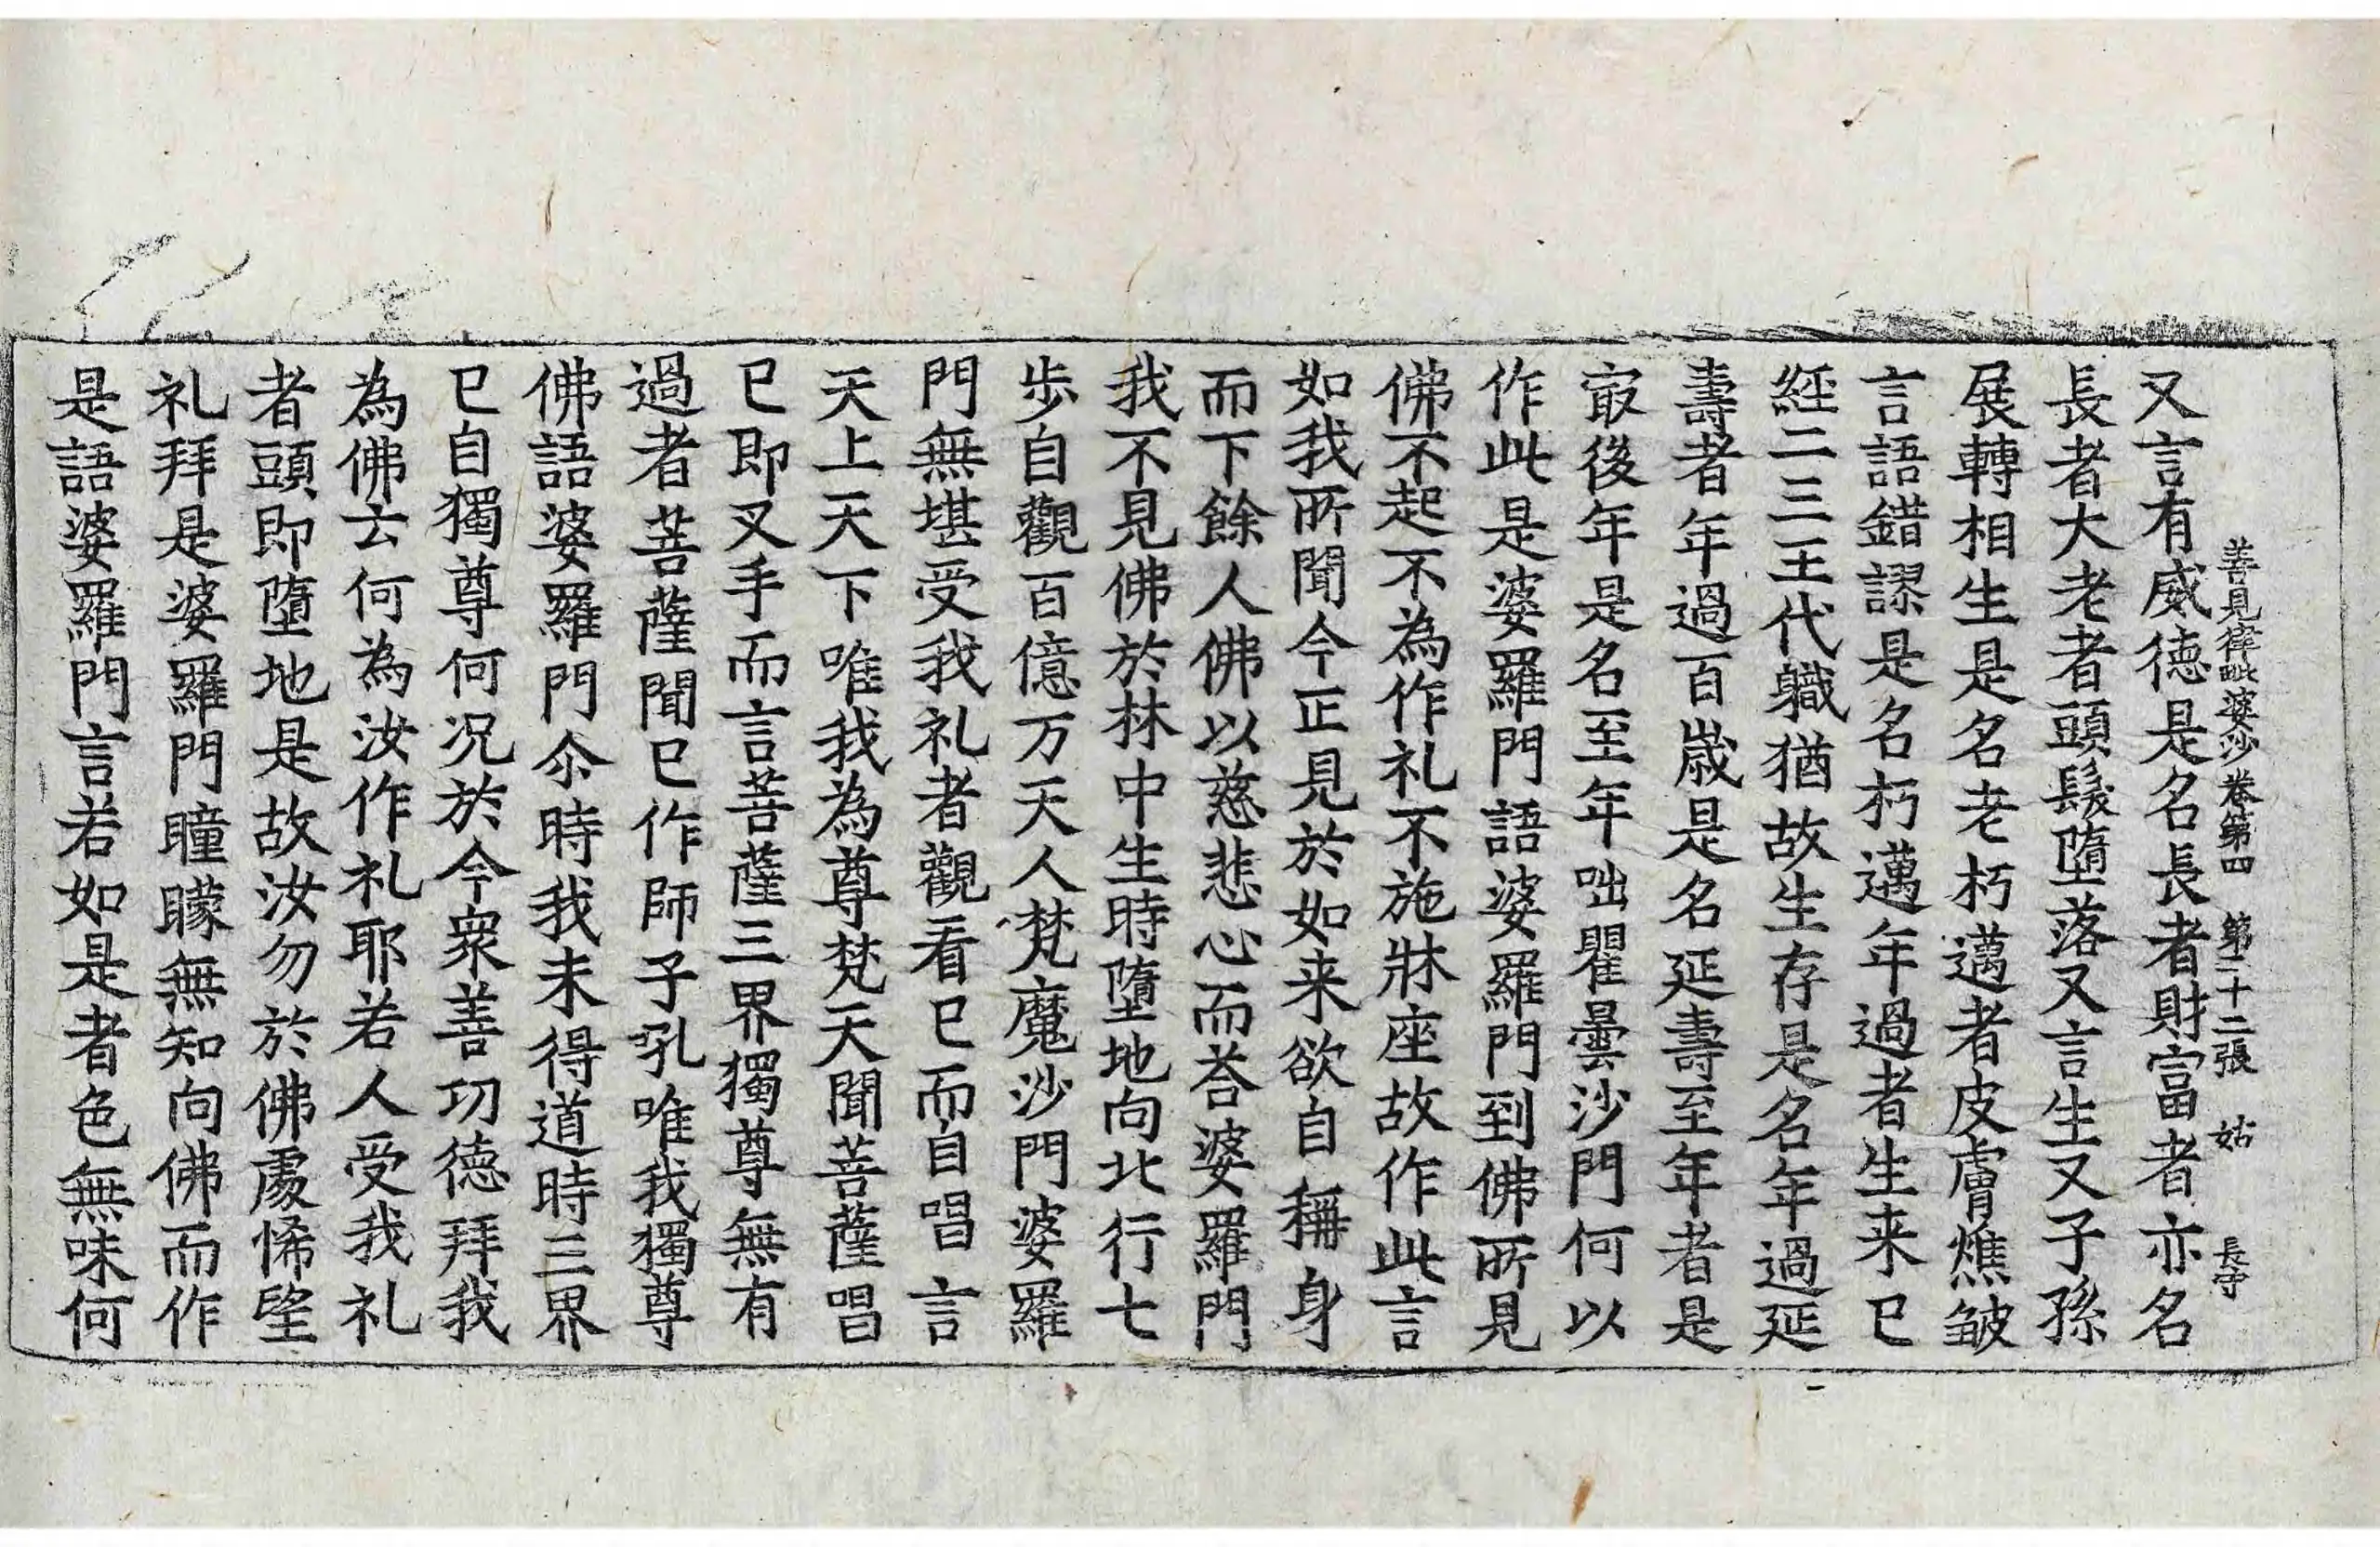 善見律毗婆沙卷第四 第二十二張 姑 長守
又言有威徳是名長者財富者亦名
長者大老者頭髮墮落又言生又子孫
展轉相生是名老朽邁者皮膚燋皺
言語錯謬是名朽邁年過者生来已
經二三王代軄猶故生存是名年過延
壽者年過百歳是名延壽至年者是
㝡後年是名至年咄瞿曇沙門何以
作此是婆羅門語婆羅門到佛所見
佛不起不為作礼不施牀座故作此言
如我所聞今正見於如来欲自稱身
而下餘人佛以慈悲心而荅婆羅門
我不見佛於林中生時墮地向北行七
歩自觀百億万天人梵魔沙門婆羅
門無堪受我礼者觀看已而自唱言
天上天下唯我為尊梵天聞菩薩唱
已即叉手而言菩薩三界獨尊無有
過者菩薩聞已作師子吼唯我獨尊
佛語婆羅門尒時我未得道時三界
已自獨尊何况於今衆善功徳拜我
為佛云何為汝作礼耶若人受我礼
者頭即墮地是故汝勿於佛處悕望
礼拜是婆羅門瞳矇無知向佛而作
是語婆羅門言若如是者色無味何